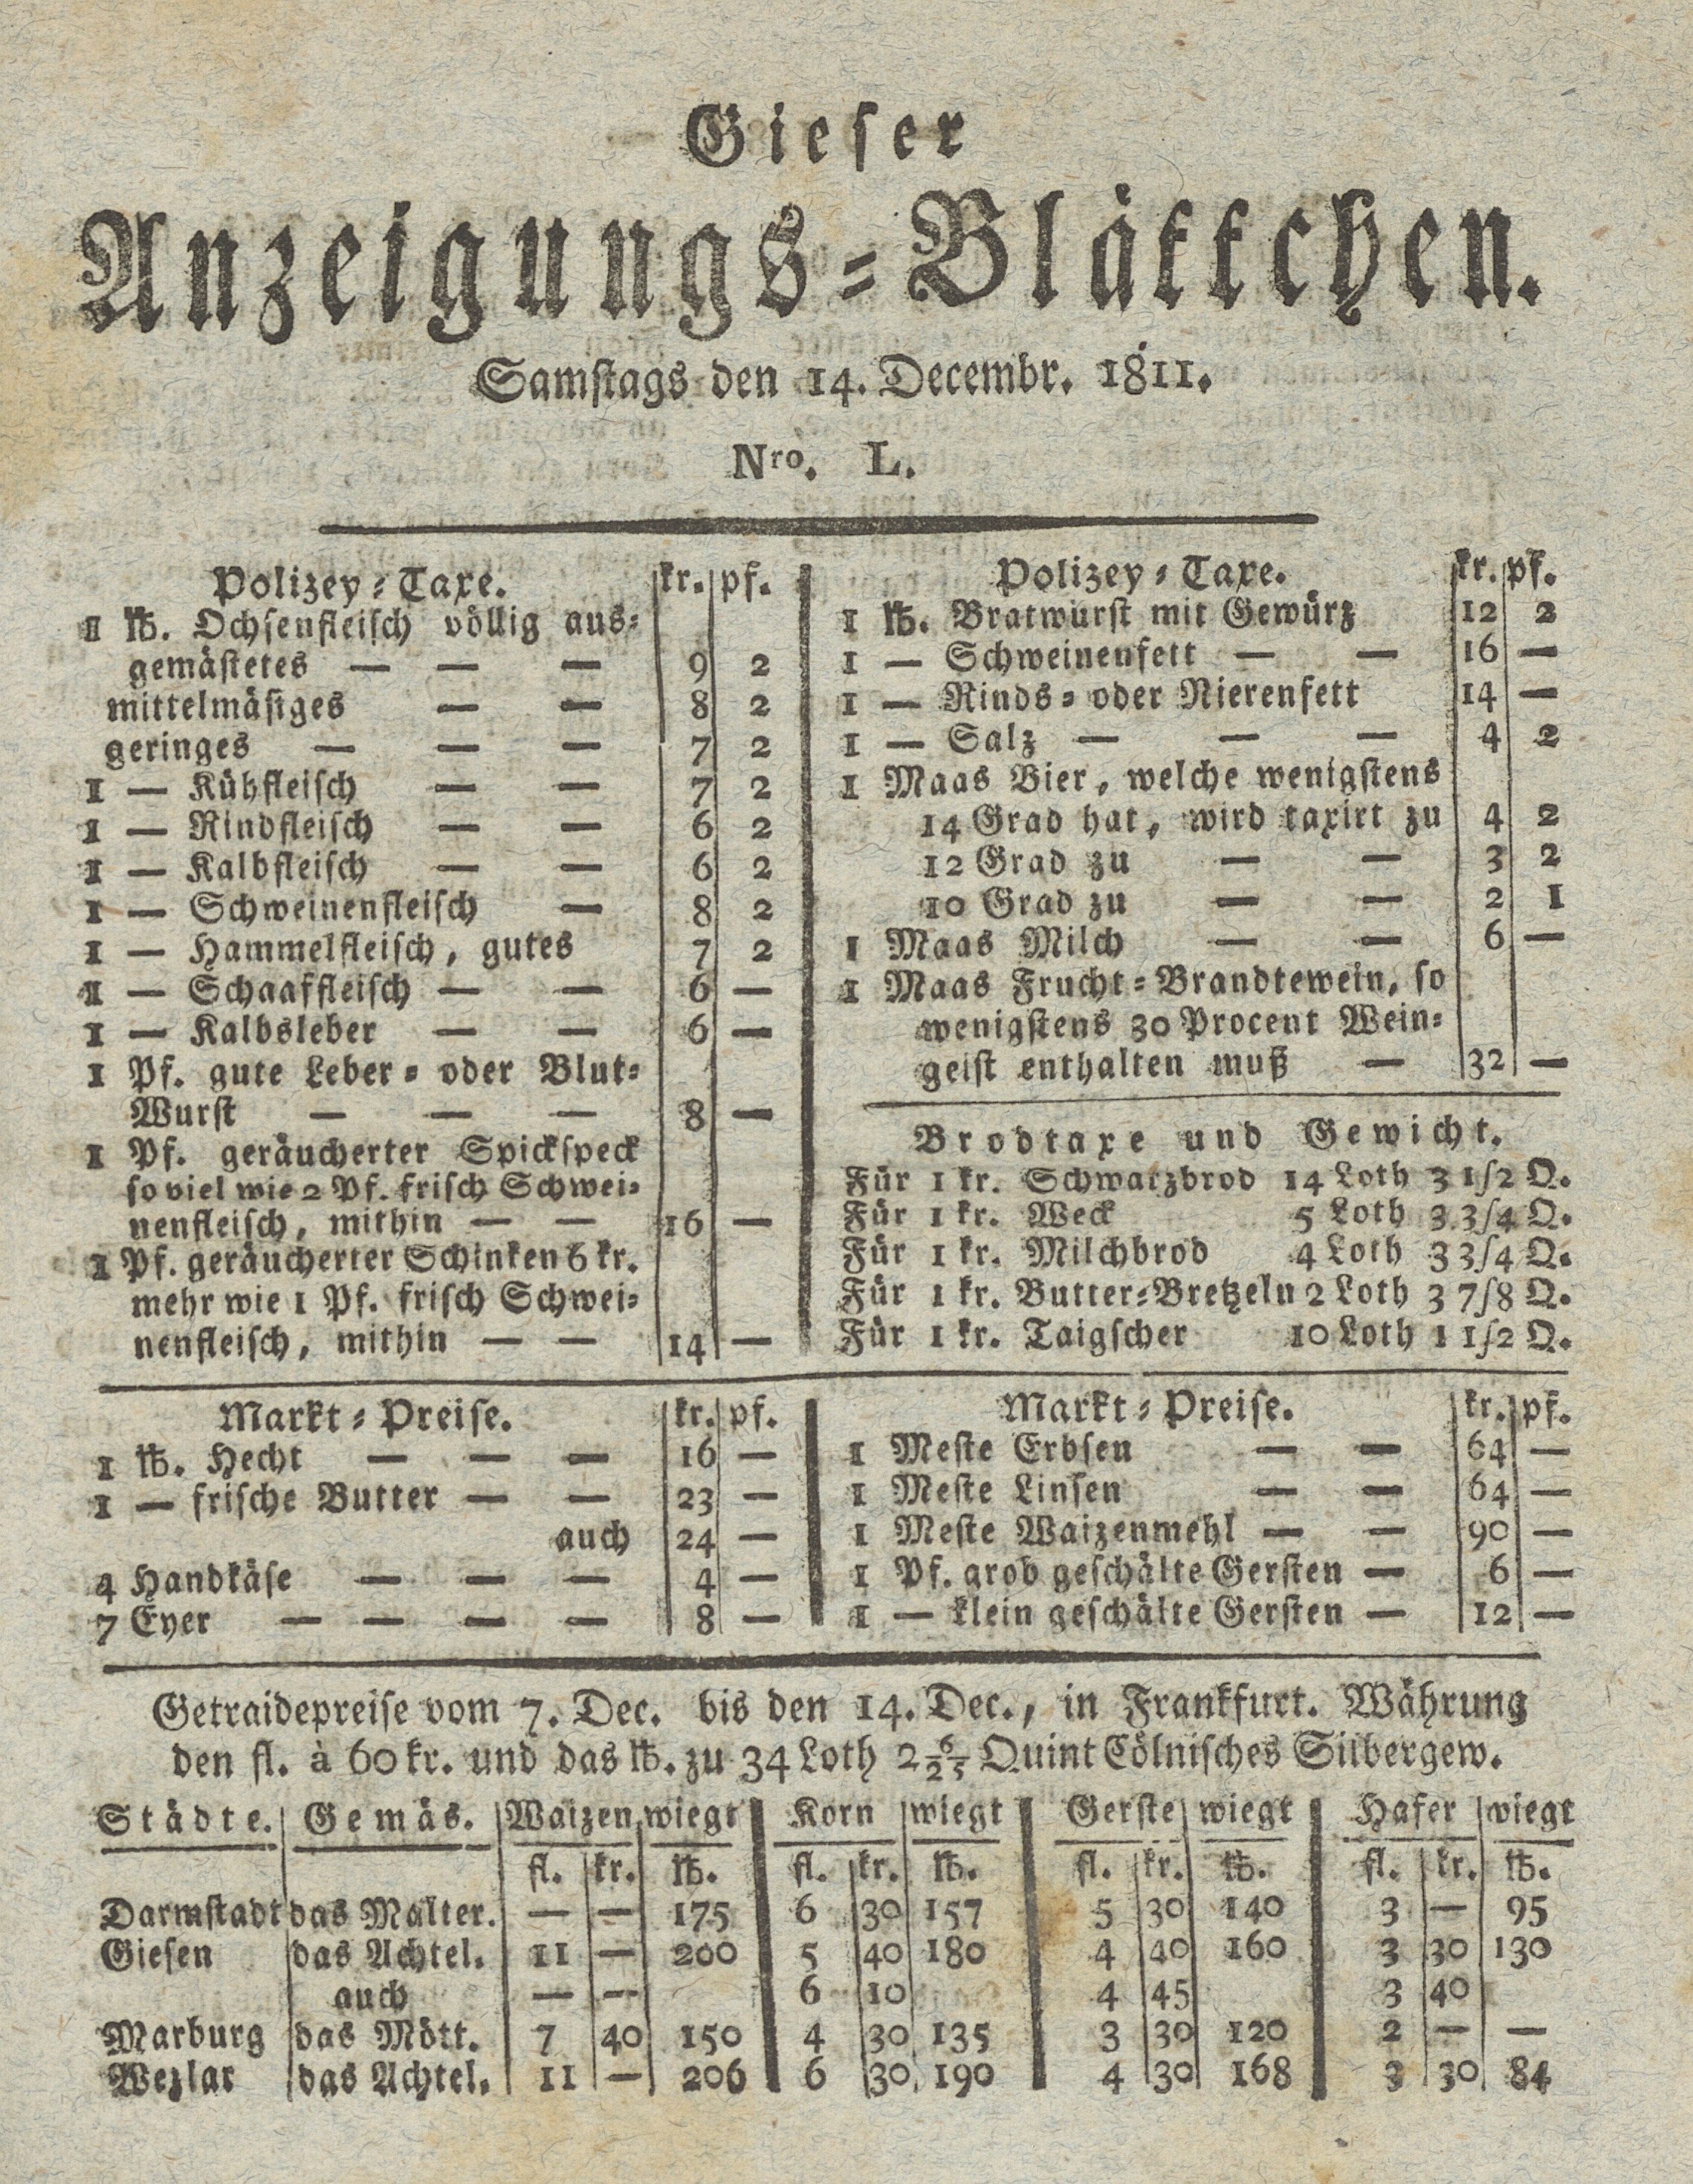 Gieser
Anzeigungs-Blättchen.
Samstags den 14. Decembr. 1811.
Nro. L.
Polizey-Taxe. kr. pf.
1 ℔. Ochsenfleisch völlig aus-
gemästetes — — — 9 2
mittelmäsiges — — 8 2
geringes — — — 7 2
1 — Kühfleisch — — 7 2
1 — Rindfleisch — — 6 2
1 — Kalbfleisch — — 6 2
1 — Schweinenfleisch — 8 2
1 — Hammelfleisch, gutes 7 2
1 — Schaaffleisch — — 6 —
1 — Kalbsleber — — 6 —
1 Pf. gute Leber- oder Blut-
Wurst — — — 8 —
1 Pf. geräucherter Spickspeck
so viel wie 2 Pf. frisch Schwei-
nenfleisch, mithin — — 16 —
1 Pf. geräucherter Schinken 6 kr.
mehr wie 1 Pf. frisch Schwei-
nenfleisch, mithin — — 14 —
Polizey-Taxe. kr. pf.
1 ℔. Bratwurst mit Gewürz 12 2
1 — Schweinenfett — — 16 —
1 — Rinds- oder Nierenfett 14 —
1 — Salz — — — 4 2
1 Maas Bier, welche wenigstens
14 Grad hat, wird taxirt zu 4 2
12 Grad zu — — 3 2
10 Grad zu — — 2 1
1 Maas Milch — — 6 —
1 Maas Frucht-Brandtewein, so
wenigstens 30 Procent Wein-
geist enthalten muß — 32 —
Brodtaxe und Gewicht.
Für 1 kr. Schwarzbrod 14 Loth 3 1/2 Q.
Für 1 kr. Weck 5 Loth 3 3/4 Q.
Für 1 kr. Milchbrod 4 Loth 3 3/4 Q.
Für 1 kr. Butter-Bretzeln 2 Loth 3 7/8 Q.
Für 1 kr. Taigscher 10 Loth 1 1/2 Q.
Markt-Preise. kr. pf.
1 ℔. Hecht — — — 16 —
1 — frische Butter — — 23 —
auch 24 —
4 Handkäse — — — 4 —
7 Eyer — — — — 8 —
Markt-Preise. kr. pf.
1 Meste Erbsen — — 64 —
1 Meste Linsen — — 64 —
1 Meste Waizenmehl — — 90 —
1 Pf. grob geschälte Gersten — 6 —
1 — klein geschälte Gersten — 12 —
Getraidepreise vom 7. Dec. bis den 14. Dec., in Frankfurt. Währung
den fl. à 60 kr. und das ℔. zu 34 Loth 2 6/25 Quint Cölnisches Silbergew.
Städte. Gemäs. Waizen wiegt Korn wiegt Gerste wiegt Hafer wiegt
fl. kr. ℔. fl. kr. ℔. fl. kr. ℔. fl. kr. ℔.
Darmstadt das Malter. — — 175 6 30 157 5 30 140 3 — 95
Giesen das Achtel. 11 — 200 5 40 180 4 40 160 3 30 130
auch — — 6 10 4 45 3 40
Marburg das Mött. 7 40 150 4 30 135 3 30 120 2 — —
Wezlar das Achtel. 11 — 206 6 30 190 4 30 168 3 30 84